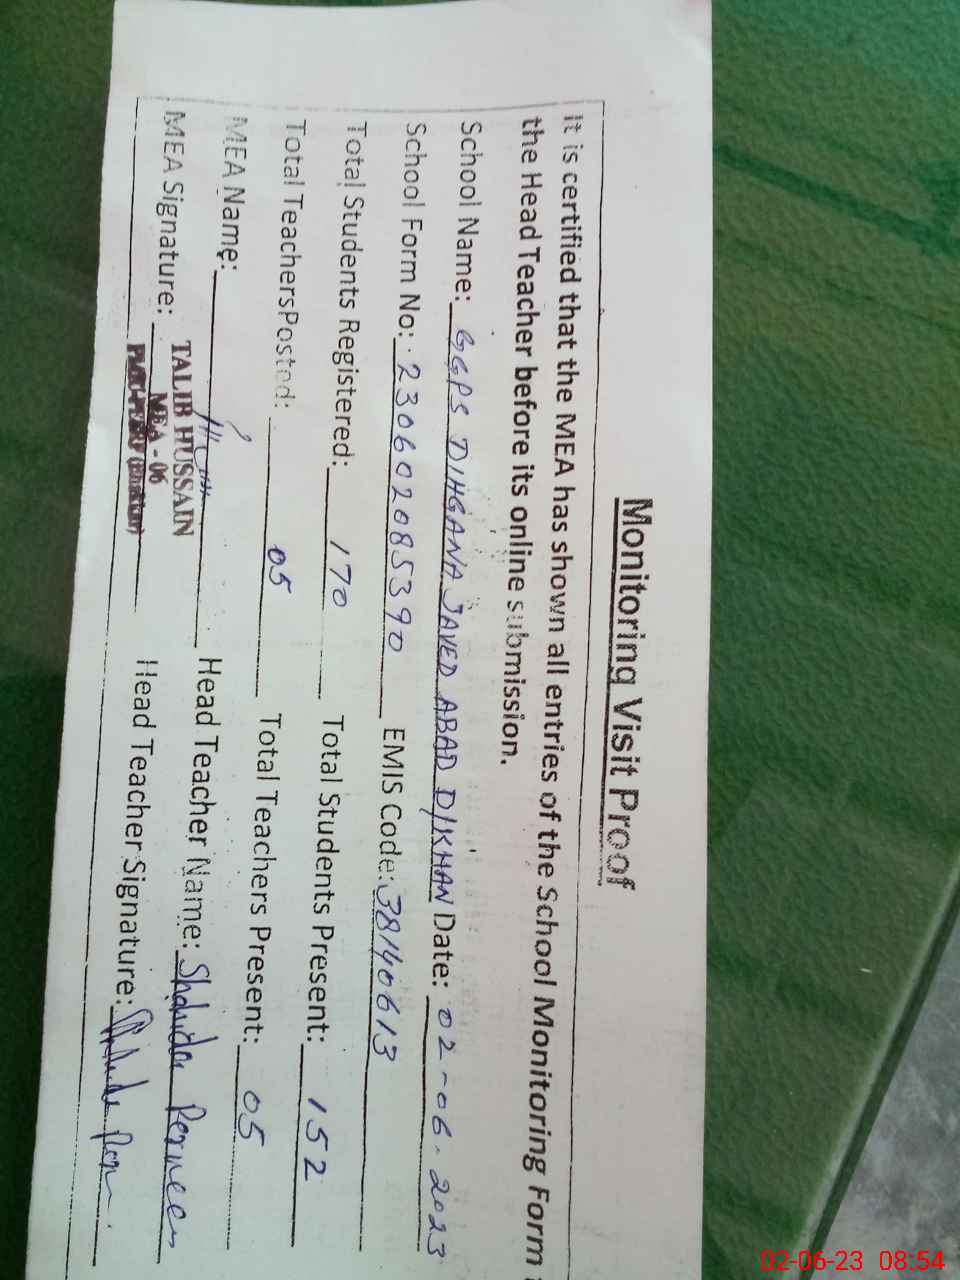 Monitoring Visit Proof
It is certified that the MEA has shown all entries of the School Monitoring Form
the Head Teacher before its online submission.
School Name: GGPS DIHGANA JAVED ABAD D/KHAN Date: 02-06-2023
School Form No: 230602085390 EMIS Code: 38140613
Total Students Registered: 170 Total Students Present: 152
Total TeachersPosted: 05 Total Teachers Present: 05
MEA Name: Head Teacher Name: Shahida Perveen
TALIB HUSSAIN
MEA Signature: MEA - 06 Head Teacher Signature:
02-06-23 08:54